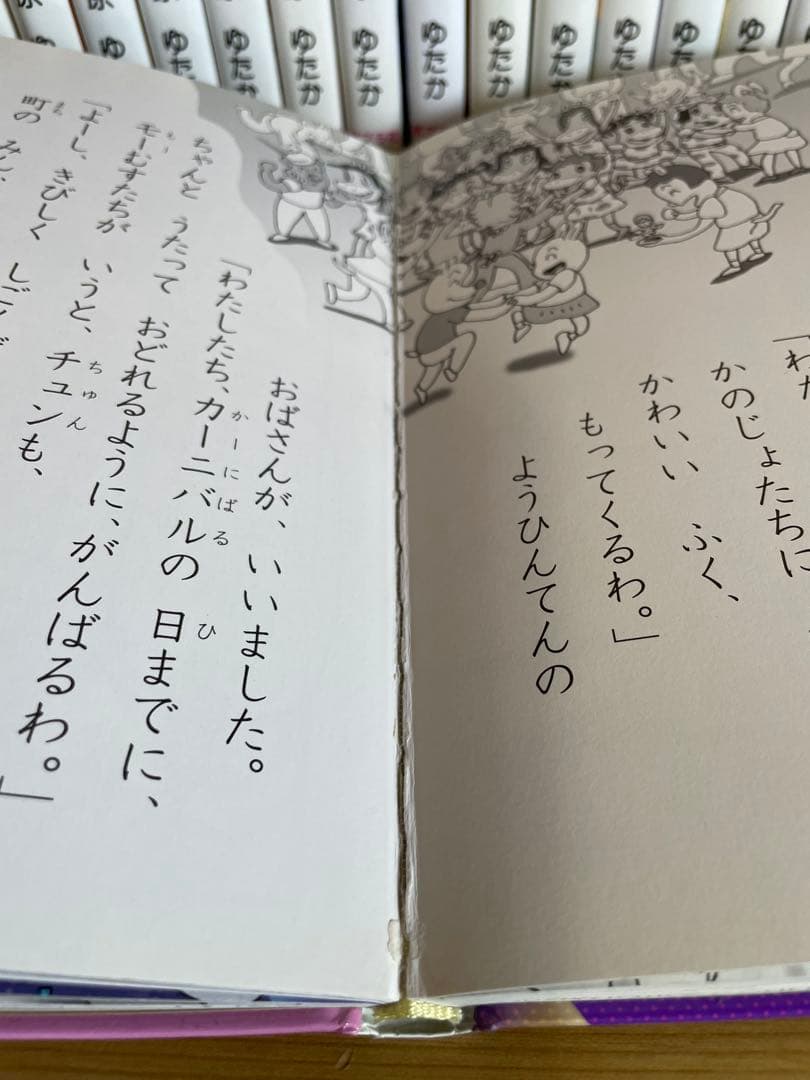 ゆたか
ゆたか
ゆたか
ゆたか
ゆたか
ゆたか
ゆたか
ゆたか
「わた
かのじょたちに
かわいい ふく、
もってくるわ。」
ようひんてんの
おばさんが、いいました。
「わたしたち、カーニバルの 日までに、
ちゃんと うたって おどれるように、がんばるわ。」
モーむすたちが いうと、チュンも、
「よーし、きびしく しご
町の みん